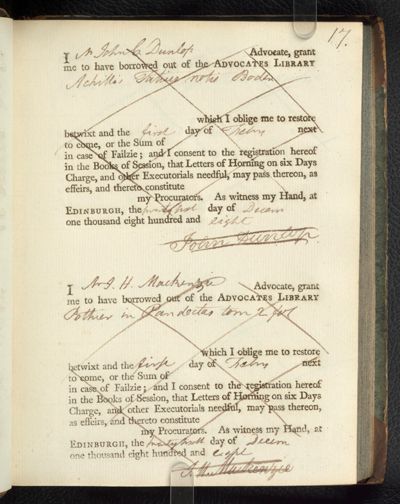 17.
I Mr John C Dunlop Advocate, grant
me to have borrowed out of the ADVOCATES LIBRARY
Achilles Tatius notis Boden
which I oblige me to restore
betwixt and the first day of Febry next
to come, or the Sum of
in case of Failzie; and I consent to the registration hereof
in the Books of Session, that Letters of Horning on six Days
Charge, and other Executorials needful, may pass thereon, as
effeirs, and thereto constitute
my Procurators. As witness my Hand, at
EDINBURGH, the day of Decem
one thousand eight hundred and eight
John Dunlop.
I Mr J. H. Mackenzie Advocate, grant
me to have borrowed out of the ADVOCATES LIBRARY
Pothier in Pandectas tom 2
which I oblige me to restore
betwixt and the first day of Febry next
to come, or the Sum of
in case of Failzie; and I consent to the registration hereof
in the Books of Session, that Letters of Horning on six Days
Charge, and other Executorials needful, may pass thereon,
as effeirs, and thereto constitute
my Procurators. As witness my Hand, at
EDINBURGH, the day of Decem
one thousand eight hundred and eight
Mackenzie